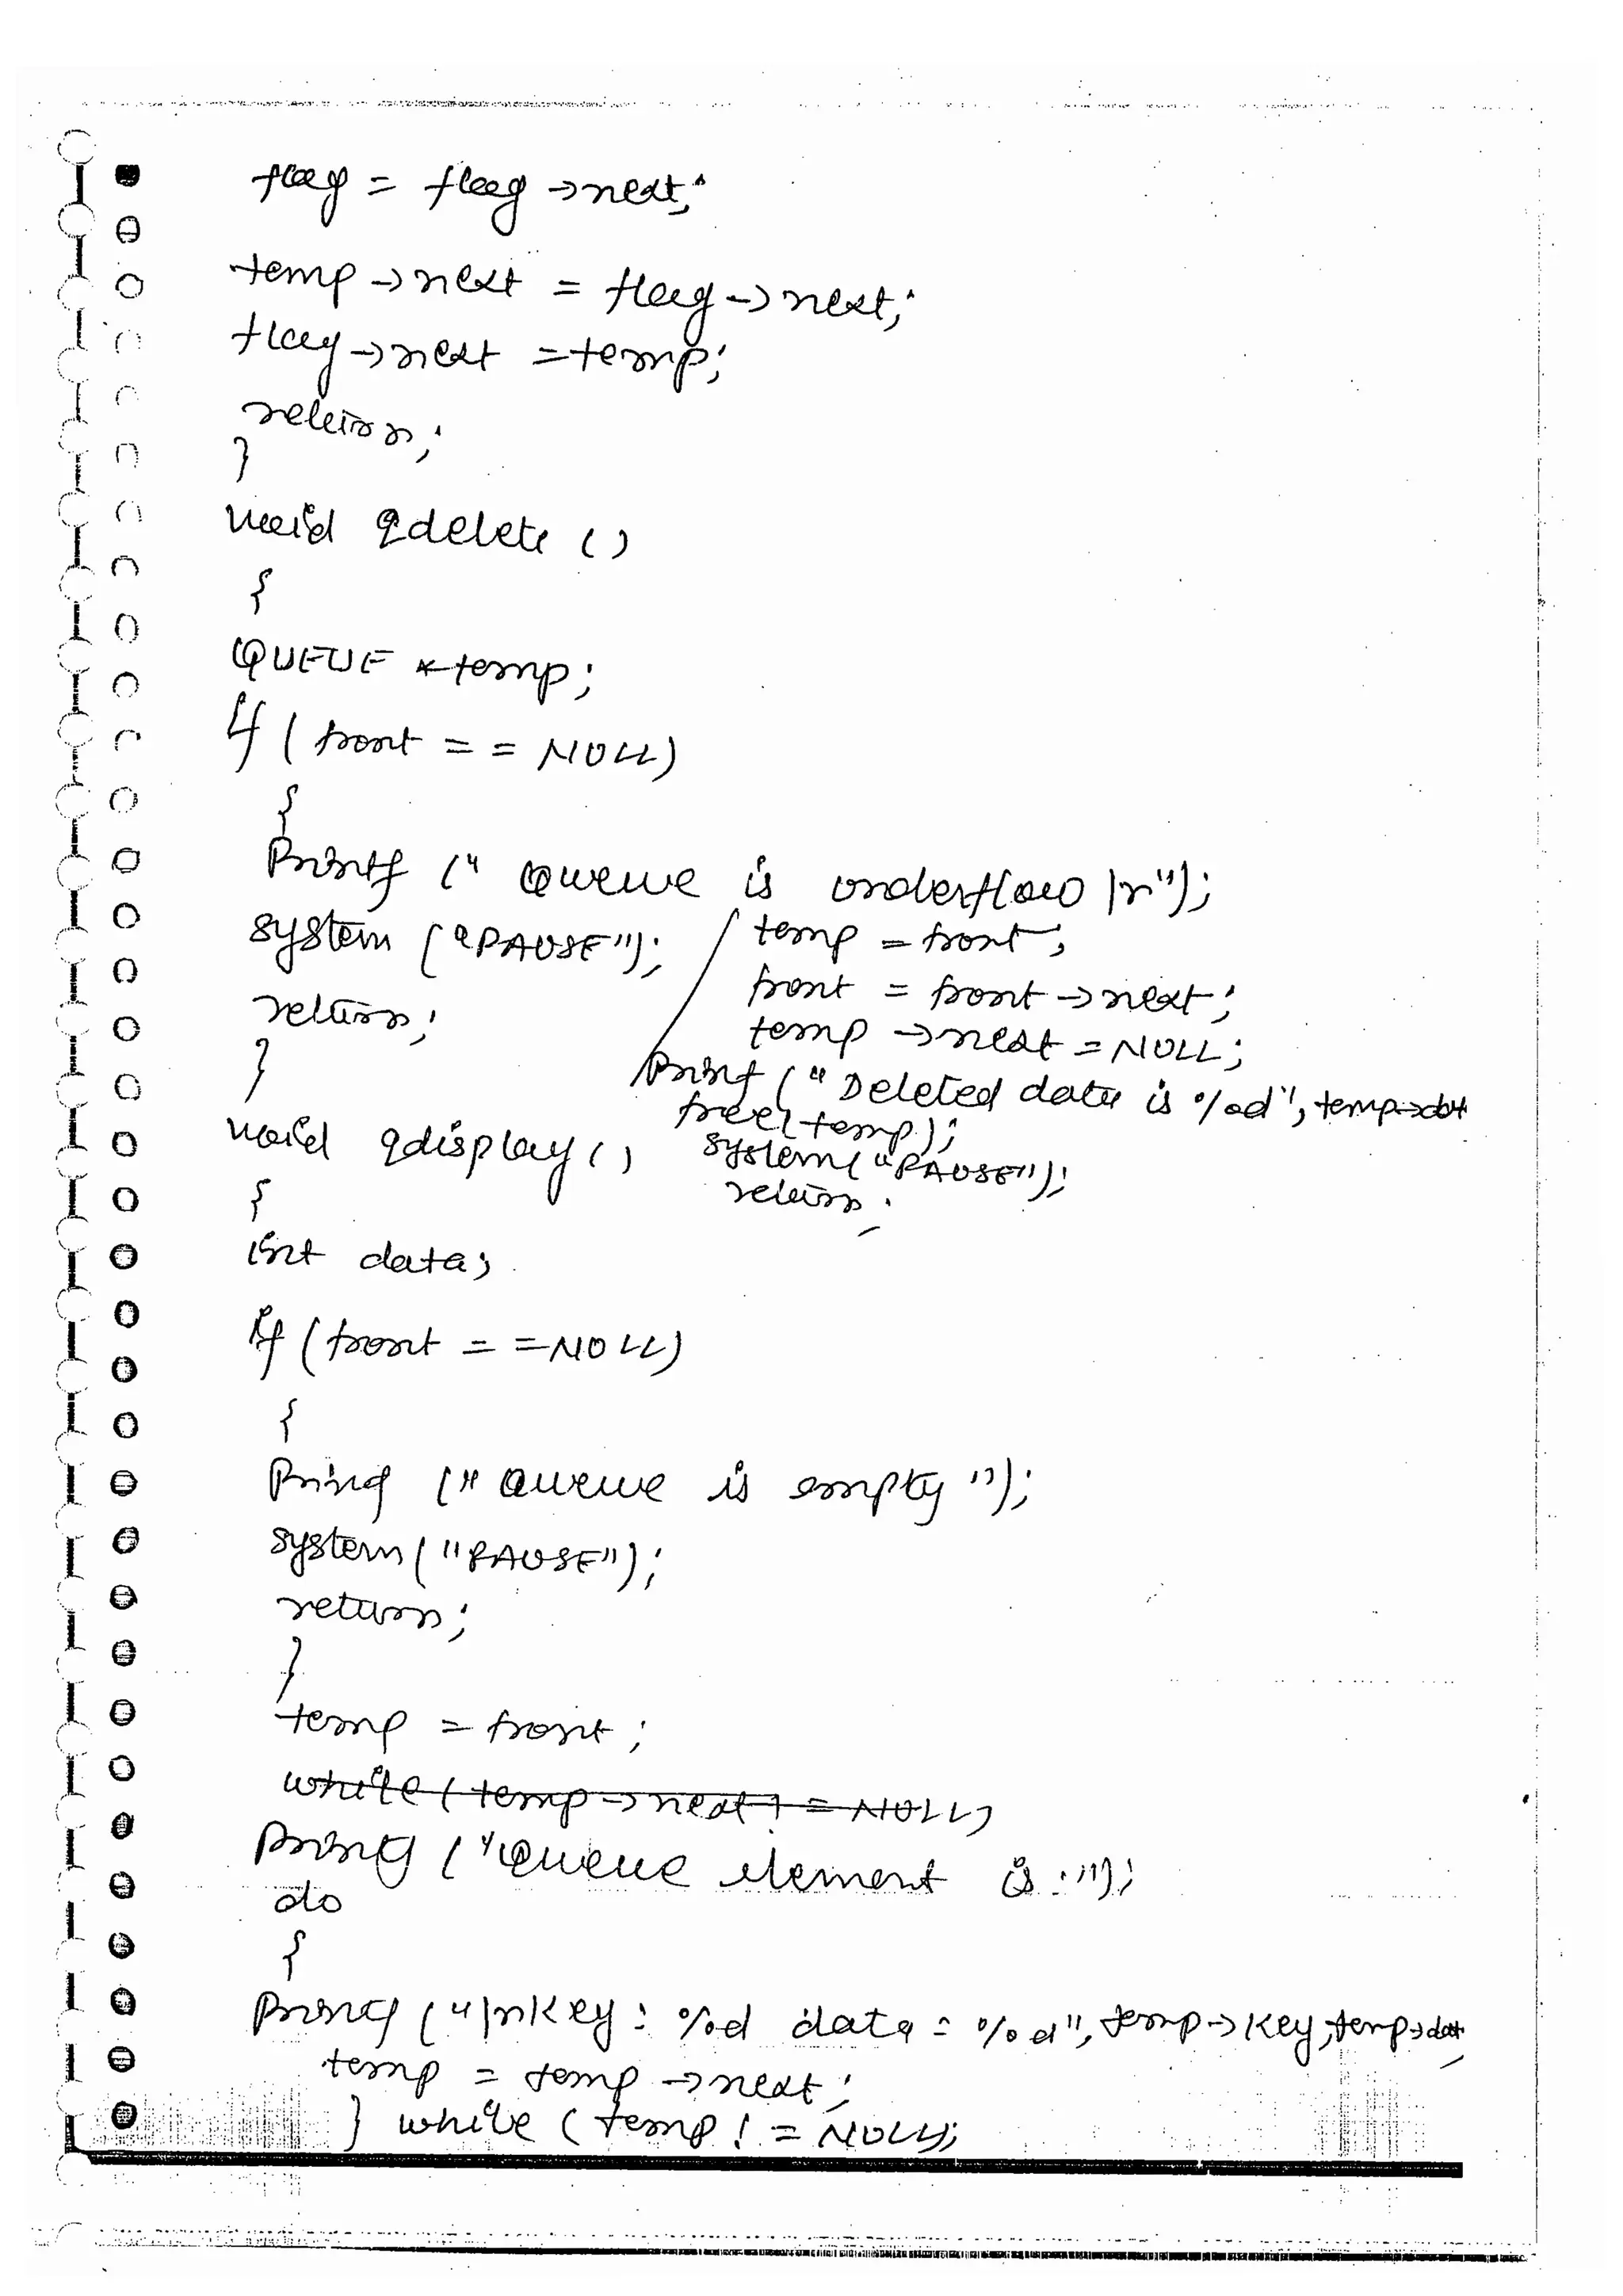 flag = flag → next;
temp → next = flag → next;
flag → next = temp;
return;
}
void qdelete ()
{
QUEUE *temp;
if ( front = = NULL)
{
Printf (" Queue is underflow \n");
system ("PAUSE");
return;
}
temp = front;
front = front → next;
temp → next = NULL;
Printf (" Deleted data is %d", temp→dat
free(temp);
system("PAUSE");
return;
void qdisplay ()
{
int data;
if (front = = NULL)
{
Printf (" Queue is empty ");
system ("PAUSE");
return;
}
temp = front;
while (temp → next ! = NULL)
printf ("Queue element is :");
do
{
Printf ("\nKey : %d data = %d", temp → key, temp→dat
temp = temp → next;
} while ( temp ! = NULL);